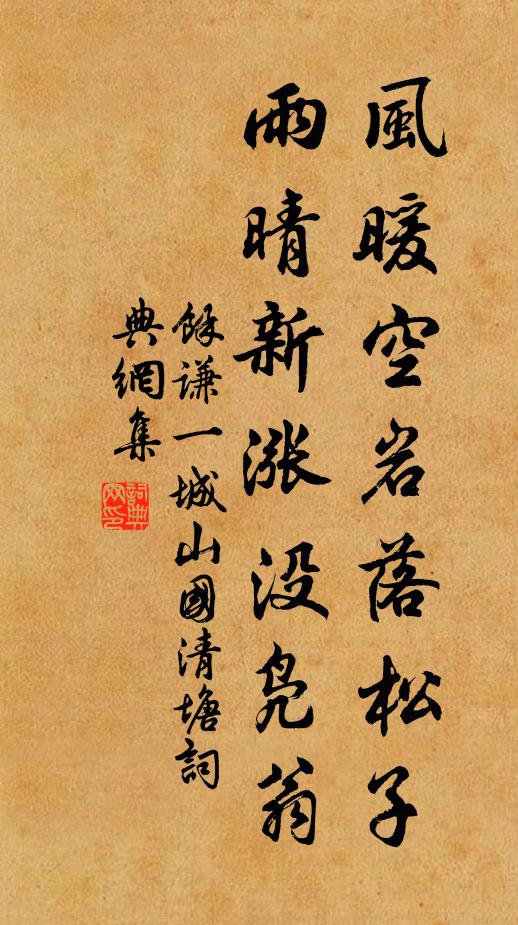 風暖空岩落松子
雨晴新漲没鳧翁
餘謙一城山國清塘詞
典網集
詞典
網印